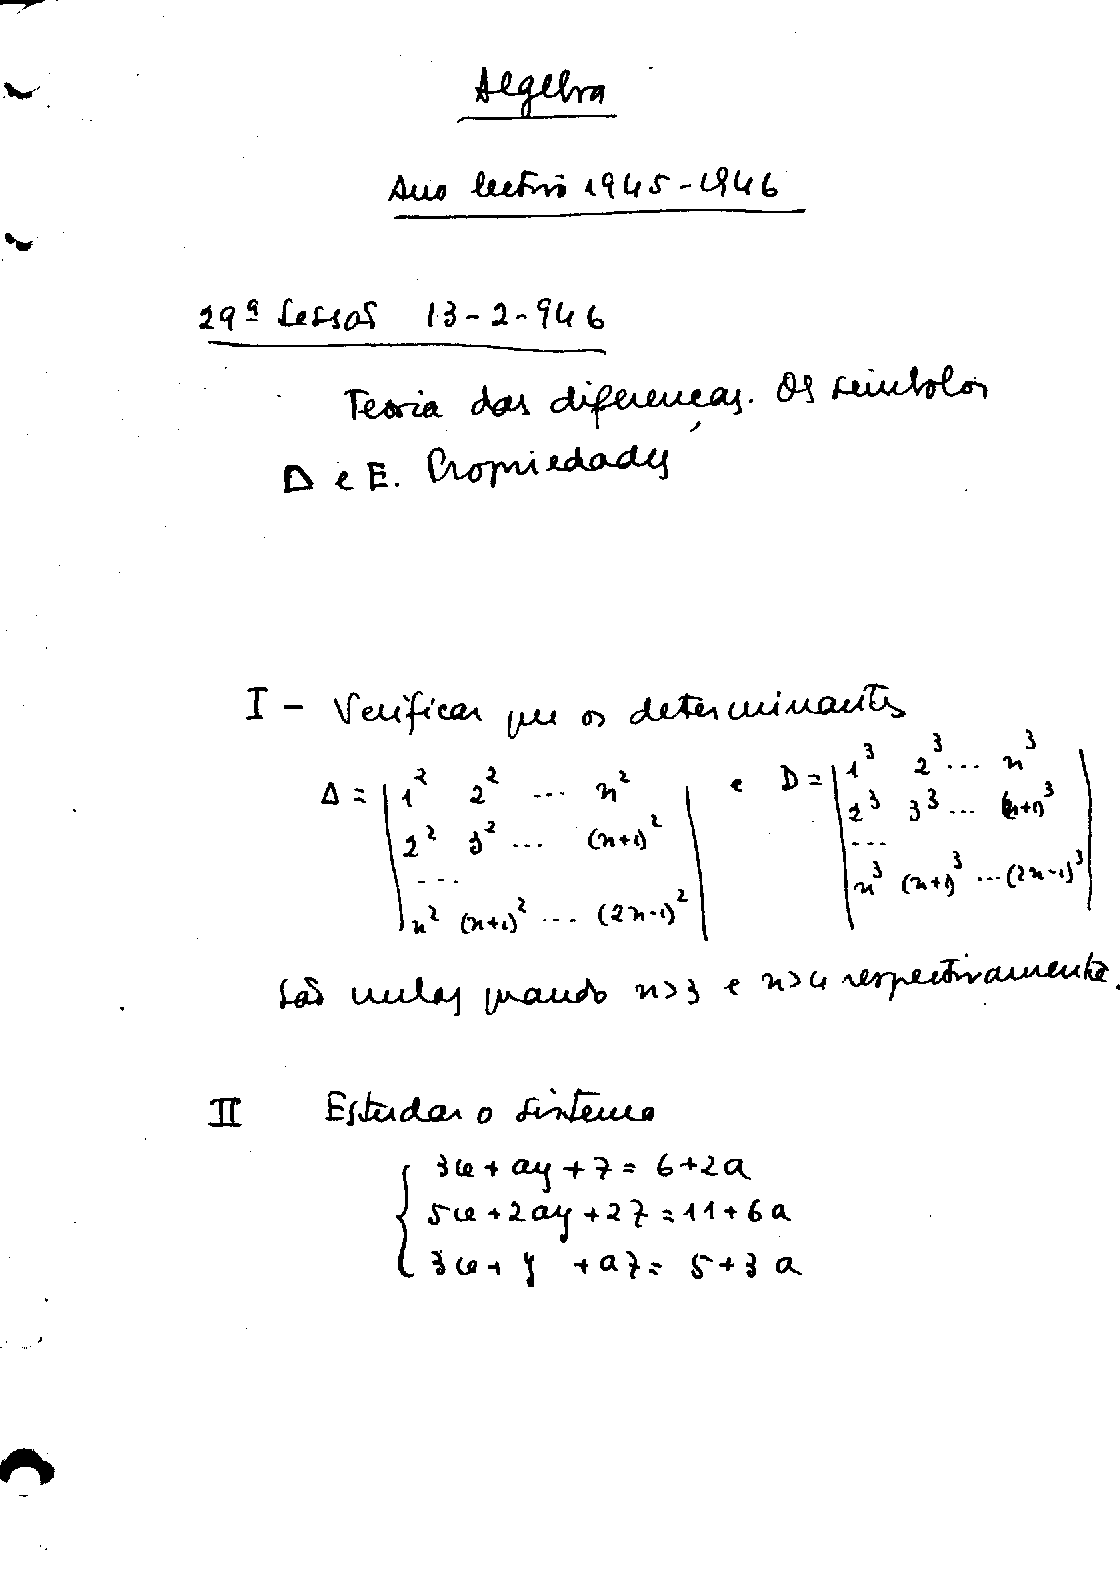 Algebra
Ano lectivo 1945-1946
29ª Lessão 13-2-946
Teoria das diferenças. Os símbolos
Δ e E. Propriedades
I - Verificar que os determinantes
Δ = | 1² 2² ... n² | e D = | 1³ 2³ ... n³ |
| 2² 3² ... (n+1)² | | 2³ 3³ ... (n+1)³ |
| ... | | ... |
| n² (n+1)² ... (2n-1)² | | n³ (n+1)³ ... (2n-1)³ |
são nulos quando n>3 e n>4 respectivamente.
II Estudar o sistema
{ 3x + ay + z = 6+2a
5x + 2ay + 2z = 11+6a
3x + y + az = 5+3a